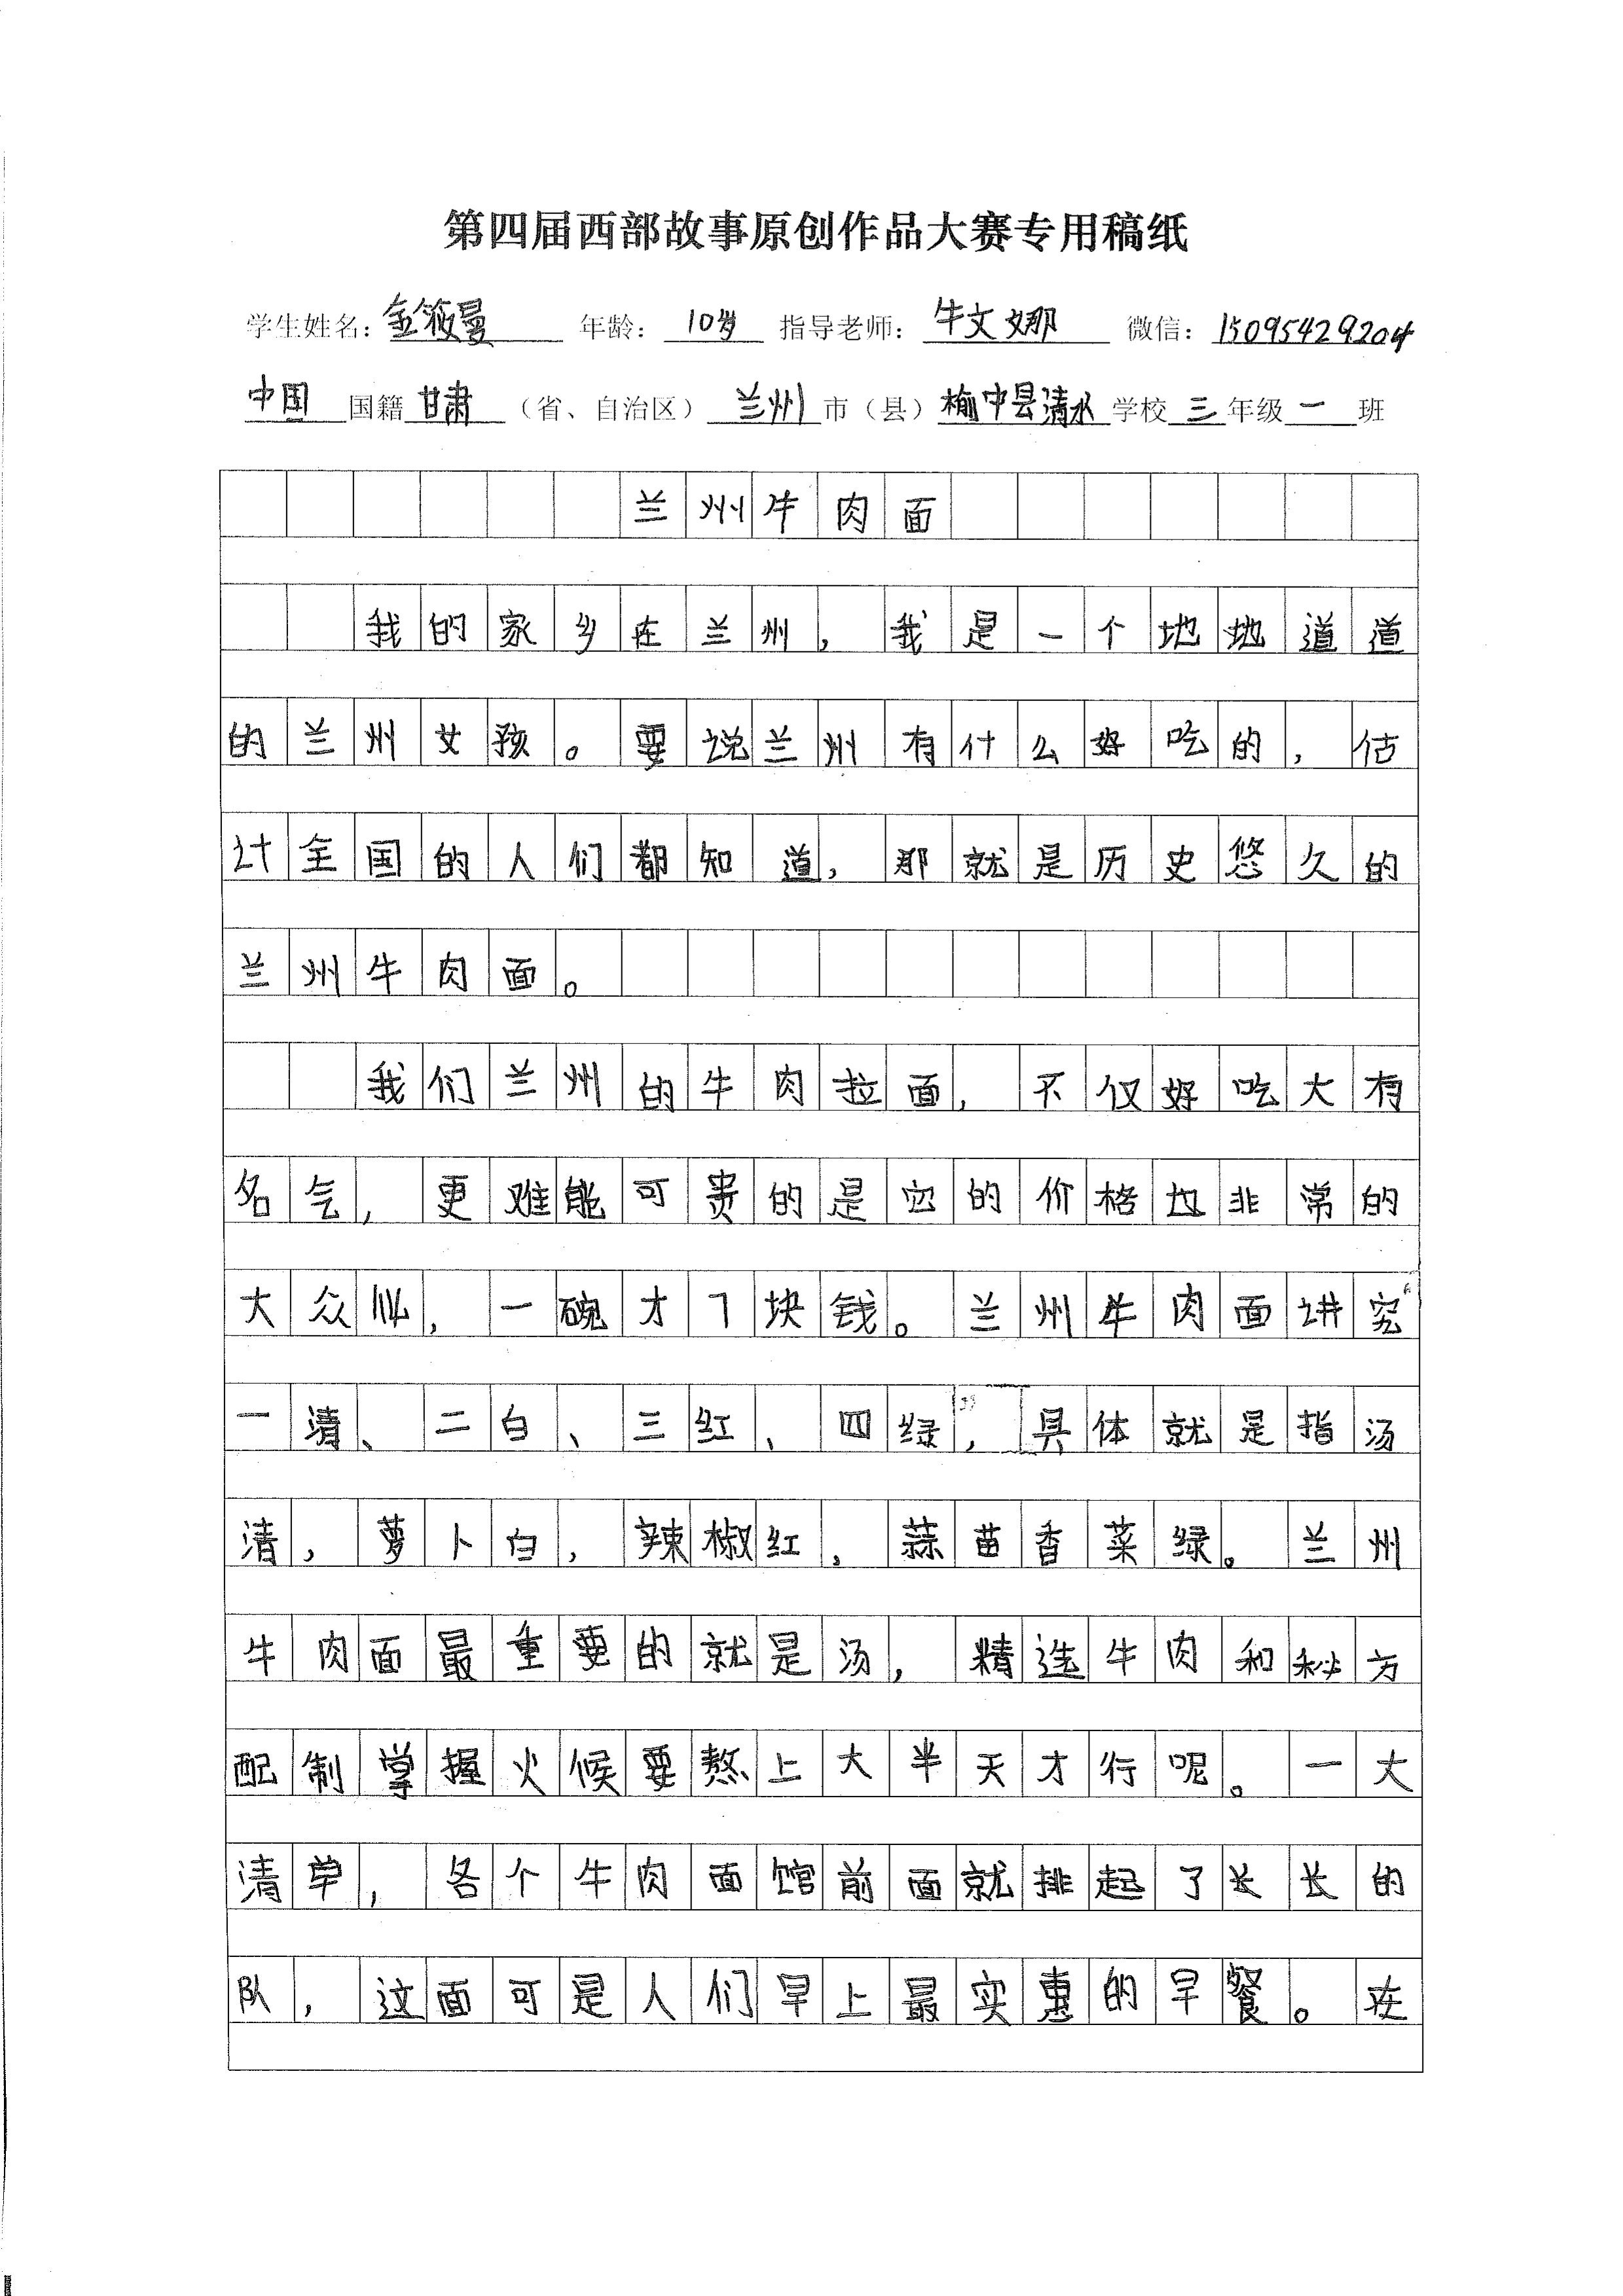 第四届西部故事原创作品大赛专用稿纸
学生姓名：金筱曼 年龄：10岁 指导老师：牛文娜 微信：15095429204
中国国籍甘肃（省、自治区）兰州市（县）榆中县清水学校三年级一班
兰州牛肉面
我的家乡在兰州，我是一个地地道道
的兰州女孩。要说兰州有什么好吃的，估
计全国的人们都知道，那就是历史悠久的
兰州牛肉面。
我们兰州的牛肉拉面，不仅好吃大有
名气，更难能可贵的是它的价格也非常的
大众化，一碗才7块钱。兰州牛肉面讲究“
一清、二白、三红、四绿”，具体就是指汤
清，萝卜白，辣椒红，蒜苗香菜绿。兰州
牛肉面最重要的就是汤，精选牛肉和秘方
配制掌握火候要熬上大半天才行呢。一大
清早，各个牛肉面馆前面就排起了长长的
队，这面可是人们早上最实惠的早餐。在